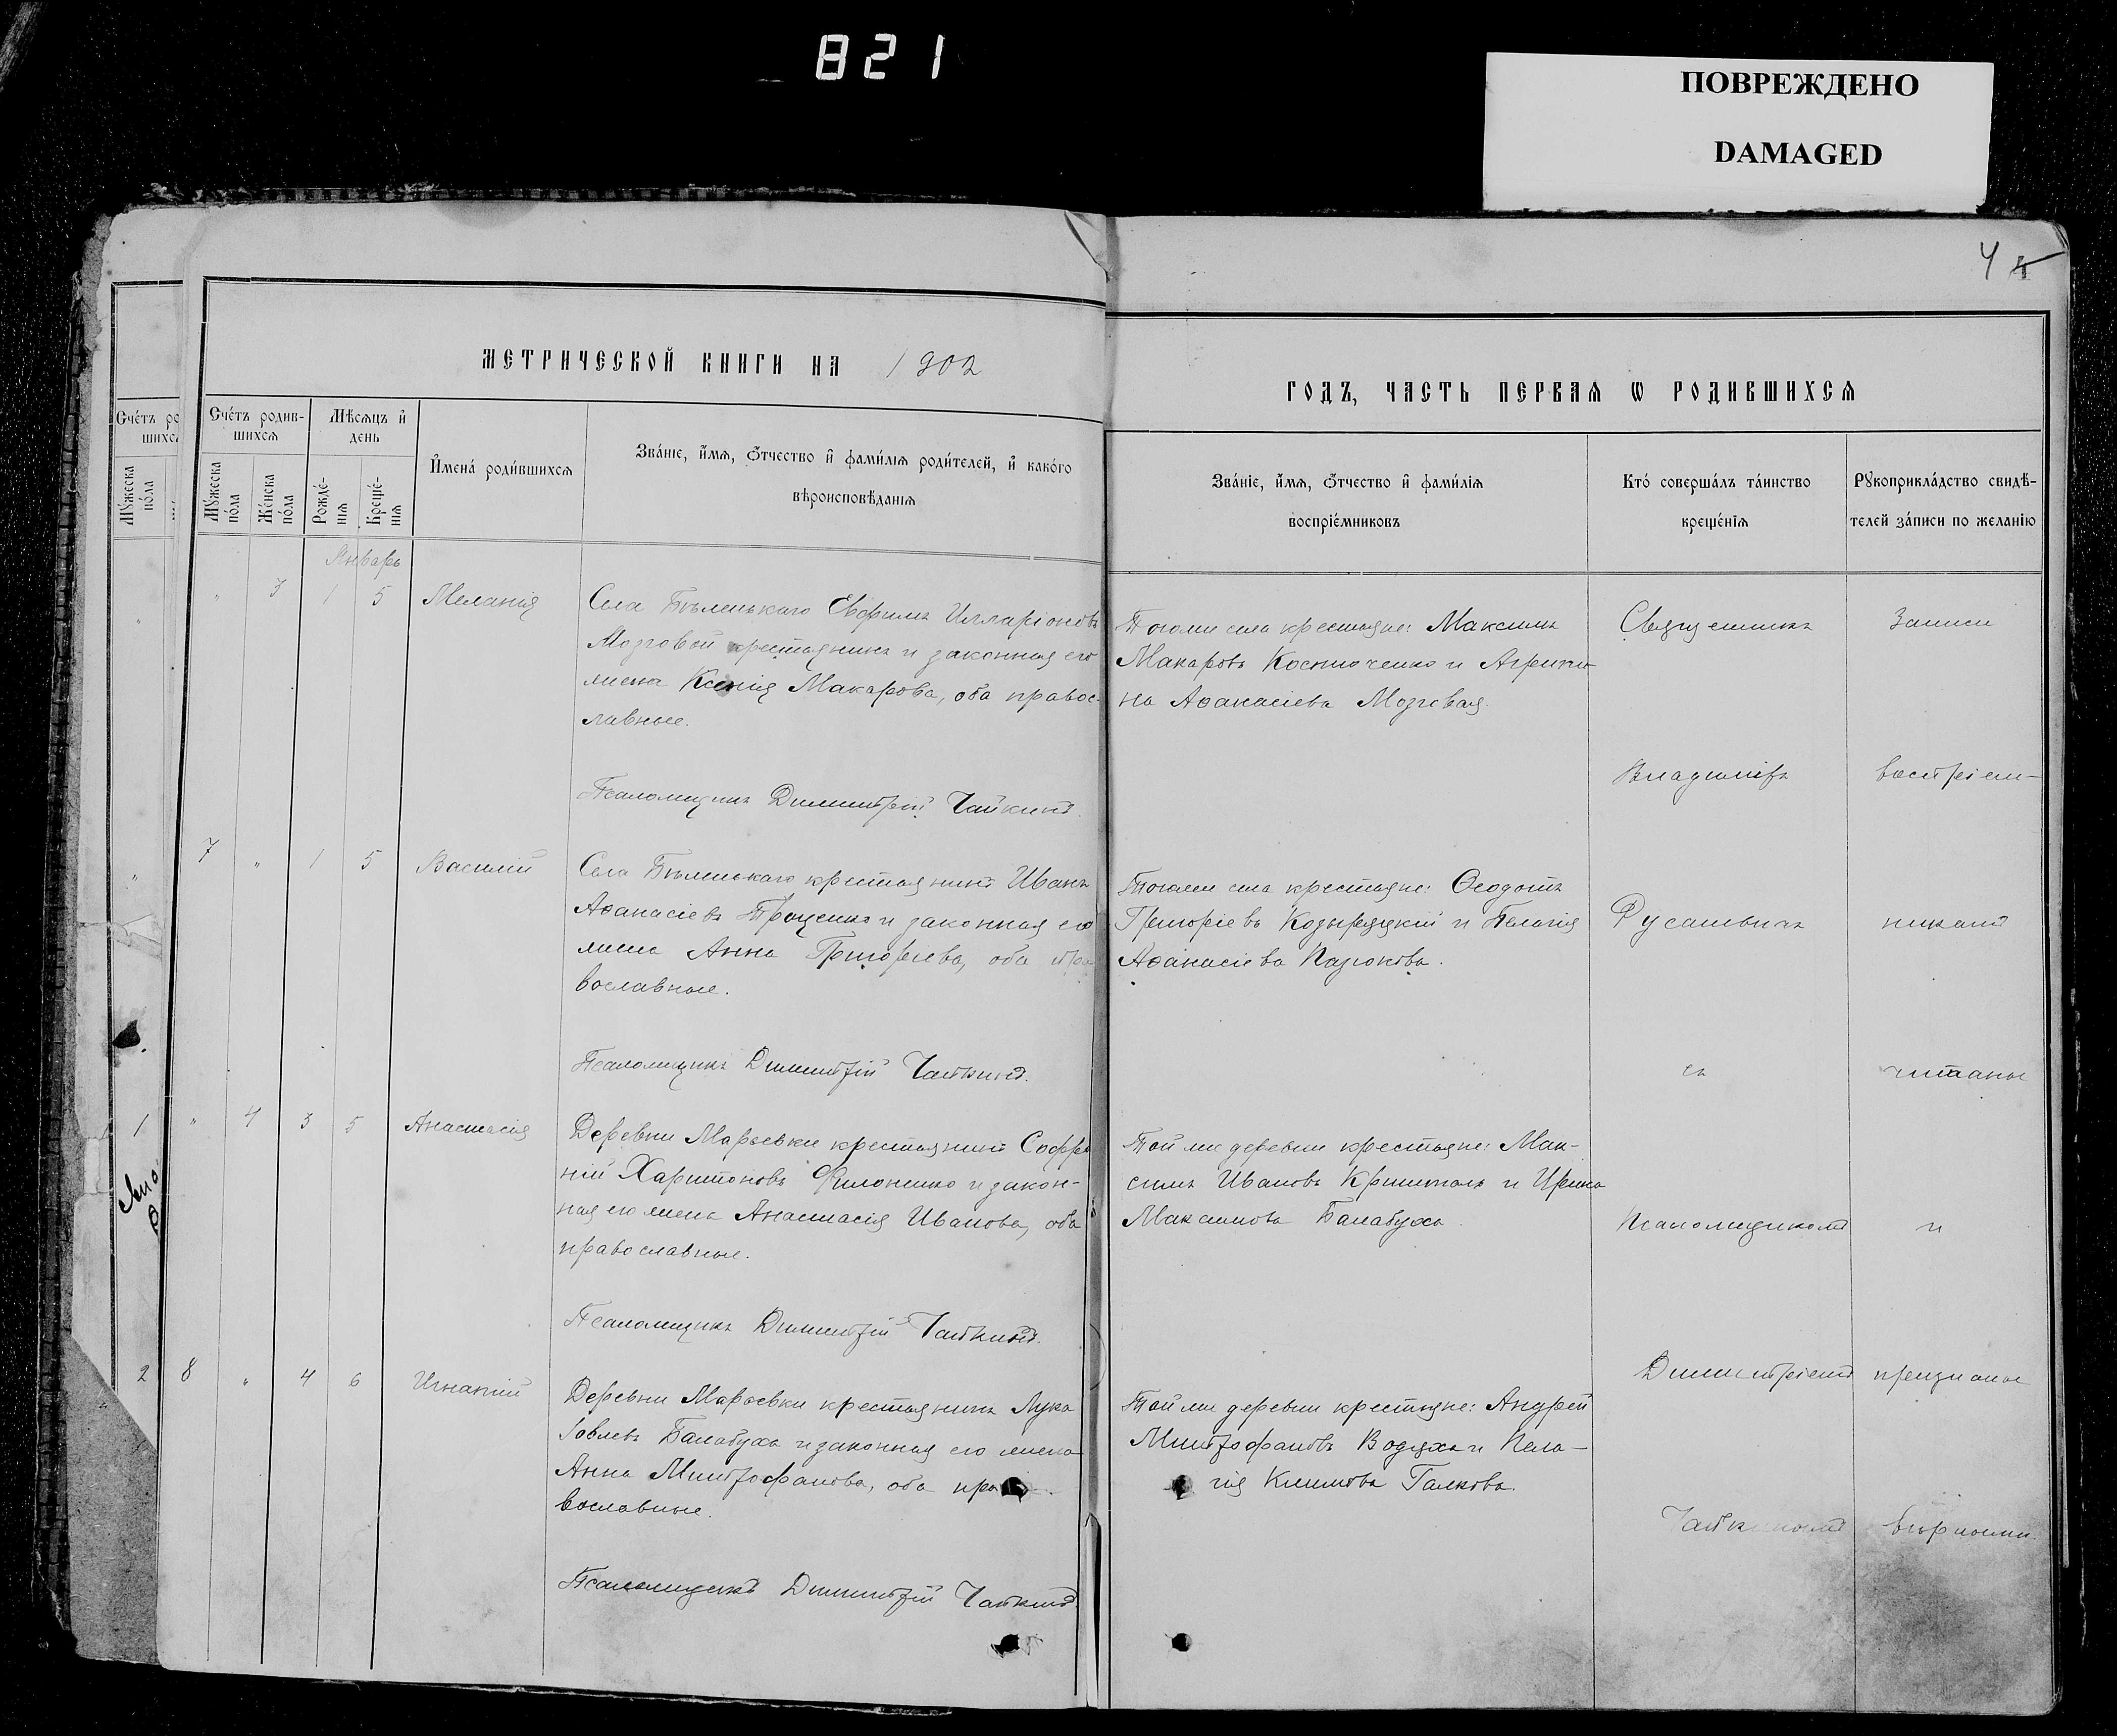 821
ПОВРЕЖДЕНО
DAMAGED
4
МЕТРИЧЕСКОЙ КНИГИ НА 1902
ГОДЪ, ЧАСТЬ ПЕРВАѦ Ѡ РОДИВШИХСѦ
Счéтъ родив-
шихсѧ
Мѣсѧцъ и
день
Мꙋжеска
пóла
Жéнска
пóла
Рождé-
нїѧ
Крещé-
нїѧ
Именá роди́вшихсѧ
Звáнїе, имѧ, ѻтчество и фами́лїѧ роди́телей, и какóго
вѣроисповѣданїѧ
Звáнїе, имѧ, ѻтчество и фами́лїѧ
воспрїéмниковъ
Ктó совершáлъ тáинство
крещéнїѧ
Рꙋкоприклáдство свидѣ-
телей зáписи по желанїю
Январь
" 3 1 5 Меланія
Села Бѣленькаго Евфимъ Илларіоновъ
Мозговой крестьянинъ и законная его
жена Ксенія Макарова, оба правос-
лавные.
Псаломщикъ Димитрій Чайкинъ.
Тогоже села крестьяне: Максимъ
Макаровъ Костюченко и Агрипи-
на Аѳанасіева Мозговая.
7 " 1 5 Василій
Села Бѣленькаго крестьянинъ Иванъ
Аѳанасіевъ Троценко и законная его
жена Анна Григоріева, оба пра
вославные.
Псаломщикъ Димитрій Чайкинъ.
Тогоже села крестьяне: Ѳеодотъ
Григоріевъ Козырецкій и Пелагія
Аѳанасіева Назюкова.
" 4 3 5 Анастасія
Деревни Марьевки крестьянинъ Софро
ній Харитоновъ Филоненко и закон-
ная его жена Анастасія Иванова, оба
православные.
Псаломщикъ Димитрій Чайкинъ.
Той же деревни крестьяне: Мак-
симъ Ивановъ Криштопъ и Ирина
Максимова Балабуха.
8 " 4 6 Игнатій
Деревни Марьевки крестьянинъ Лука
Іовлевъ Балабуха и законная его жена
Анна Митрофанова, оба пра
вославные.
Псаломщикъ Димитрій Чайкинъ
Той же деревни крестьяне: Андрей
Митрофановъ Водяха и Пела-
гія Климова Галкова.
Священникъ
Владиміръ
Русаневичъ
съ
Псаломщикомъ
Димитріемъ
Чайкинымъ
Записи
воспріем-
никами
читаны
и
признаны
вѣрными.